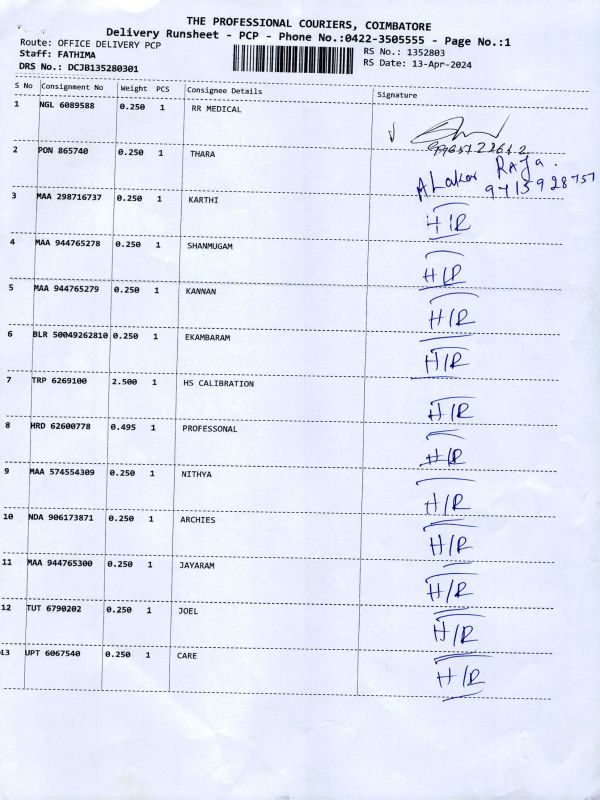 THE PROFESSIONAL COURIERS, COIMBATORE
Delivery Runsheet - PCP - Phone No.:0422-3505555 - Page No.:1
Route: OFFICE DELIVERY PCP
RS No.: 1352803
Staff: FATHIMA
RS Date: 13-Apr-2024
DRS No.: DCJB135280301
S No Consignment No Weight PCS Consignee Details Signature
1 NGL 6089588 0.250 1 RR MEDICAL
2 PON 865740 0.250 1 THARA
RAJa.
9715928757
3 MAA 298716737 0.250 1 KARTHI
H/R
4 MAA 944765278 0.250 1 SHANMUGAM
H/R
5 MAA 944765279 0.250 1 KANNAN
H/R
6 BLR 50049262810 0.250 1 EKAMBARAM
H/R
7 TRP 6269100 2.500 1 HS CALIBRATION
H/R
8 HRD 62600778 0.495 1 PROFESSONAL
H/R
9 MAA 574554309 0.250 1 NITHYA
H/R
10 NDA 906173871 0.250 1 ARCHIES
H/R
11 MAA 944765300 0.250 1 JAYARAM
H/R
12 TUT 6790202 0.250 1 JOEL
H/R
13 UPT 6067540 0.250 1 CARE
H/R